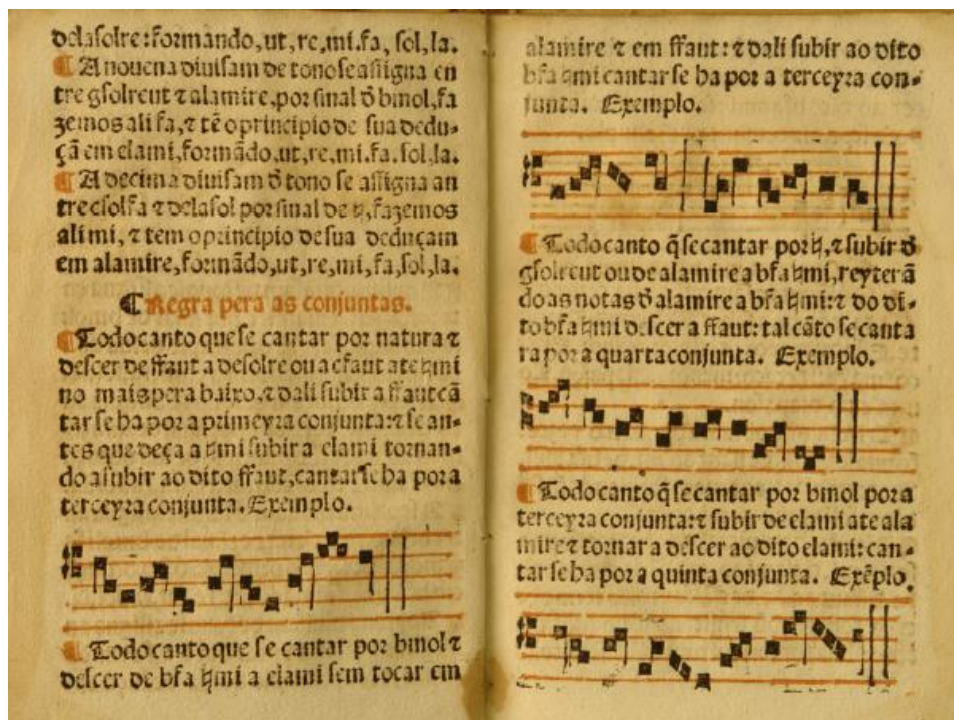 delasolre: formando, ut, re, mi. fa, sol, la.
A nouena diuisam de tono se assigna en
tre gsolreut ⁊ alamire, por sinal d̃ bmol, fa
zemos ali fa, ⁊ tẽ o principio de sua dedu-
çã em elami, formãdo, ut, re, mi. fa. sol, la.
A decima diuisam d̃ tono se assigna an
tre csolfa ⁊ delasol por sinal de ♮, fazemos
ali mi, ⁊ tem o principio de sua deduçam
em alamire, formãdo, ut, re, mi, fa, sol, la,
Regra pera as conjuntas.
Todo canto que se cantar por natura ⁊
descer de ffaut a desolre ou a cfaut ate ♮mi
no mais pera baixo, ⁊ dali subir a ffaut cã
tar se ha por a primeyra conjunta: ⁊ se an-
tes que deça a ♮mi subir a elami tornan-
do a subir ao dito ffaut, cantar se ha por a
terceyra conjunta. Exemplo.
Todo canto que se cantar por bmol ⁊
descer de bfa ♮mi a elami sem tocar em
alamire ⁊ em ffaut: ⁊ dali subir ao dito
bfa ♮mi cantar se ha por a terceyra con-
junta. Exemplo.
Todo canto q̃ se cantar por ♮, ⁊ subir d̃
gsolreut ou de alamire a bfa ♮mi, reyterã
do as notas d̃ alamire a bfa ♮mi: ⁊ do di-
to bfa ♮mi descer a ffaut: tal cãto se canta
ra por a quarta conjunta. Exemplo.
Todo canto q̃ se cantar por bmol por a
terceyra conjunta: ⁊ subir de elami ate ala
mire ⁊ tornar a descer ao dito elami: can-
tar se ha por a quinta conjunta. Exẽplo.